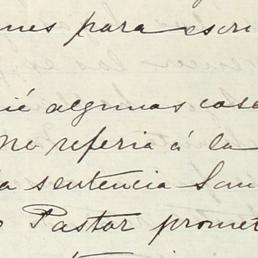 nes para escri
ié algunas cosa
me referia á la
a sentencia San
Pastor promet